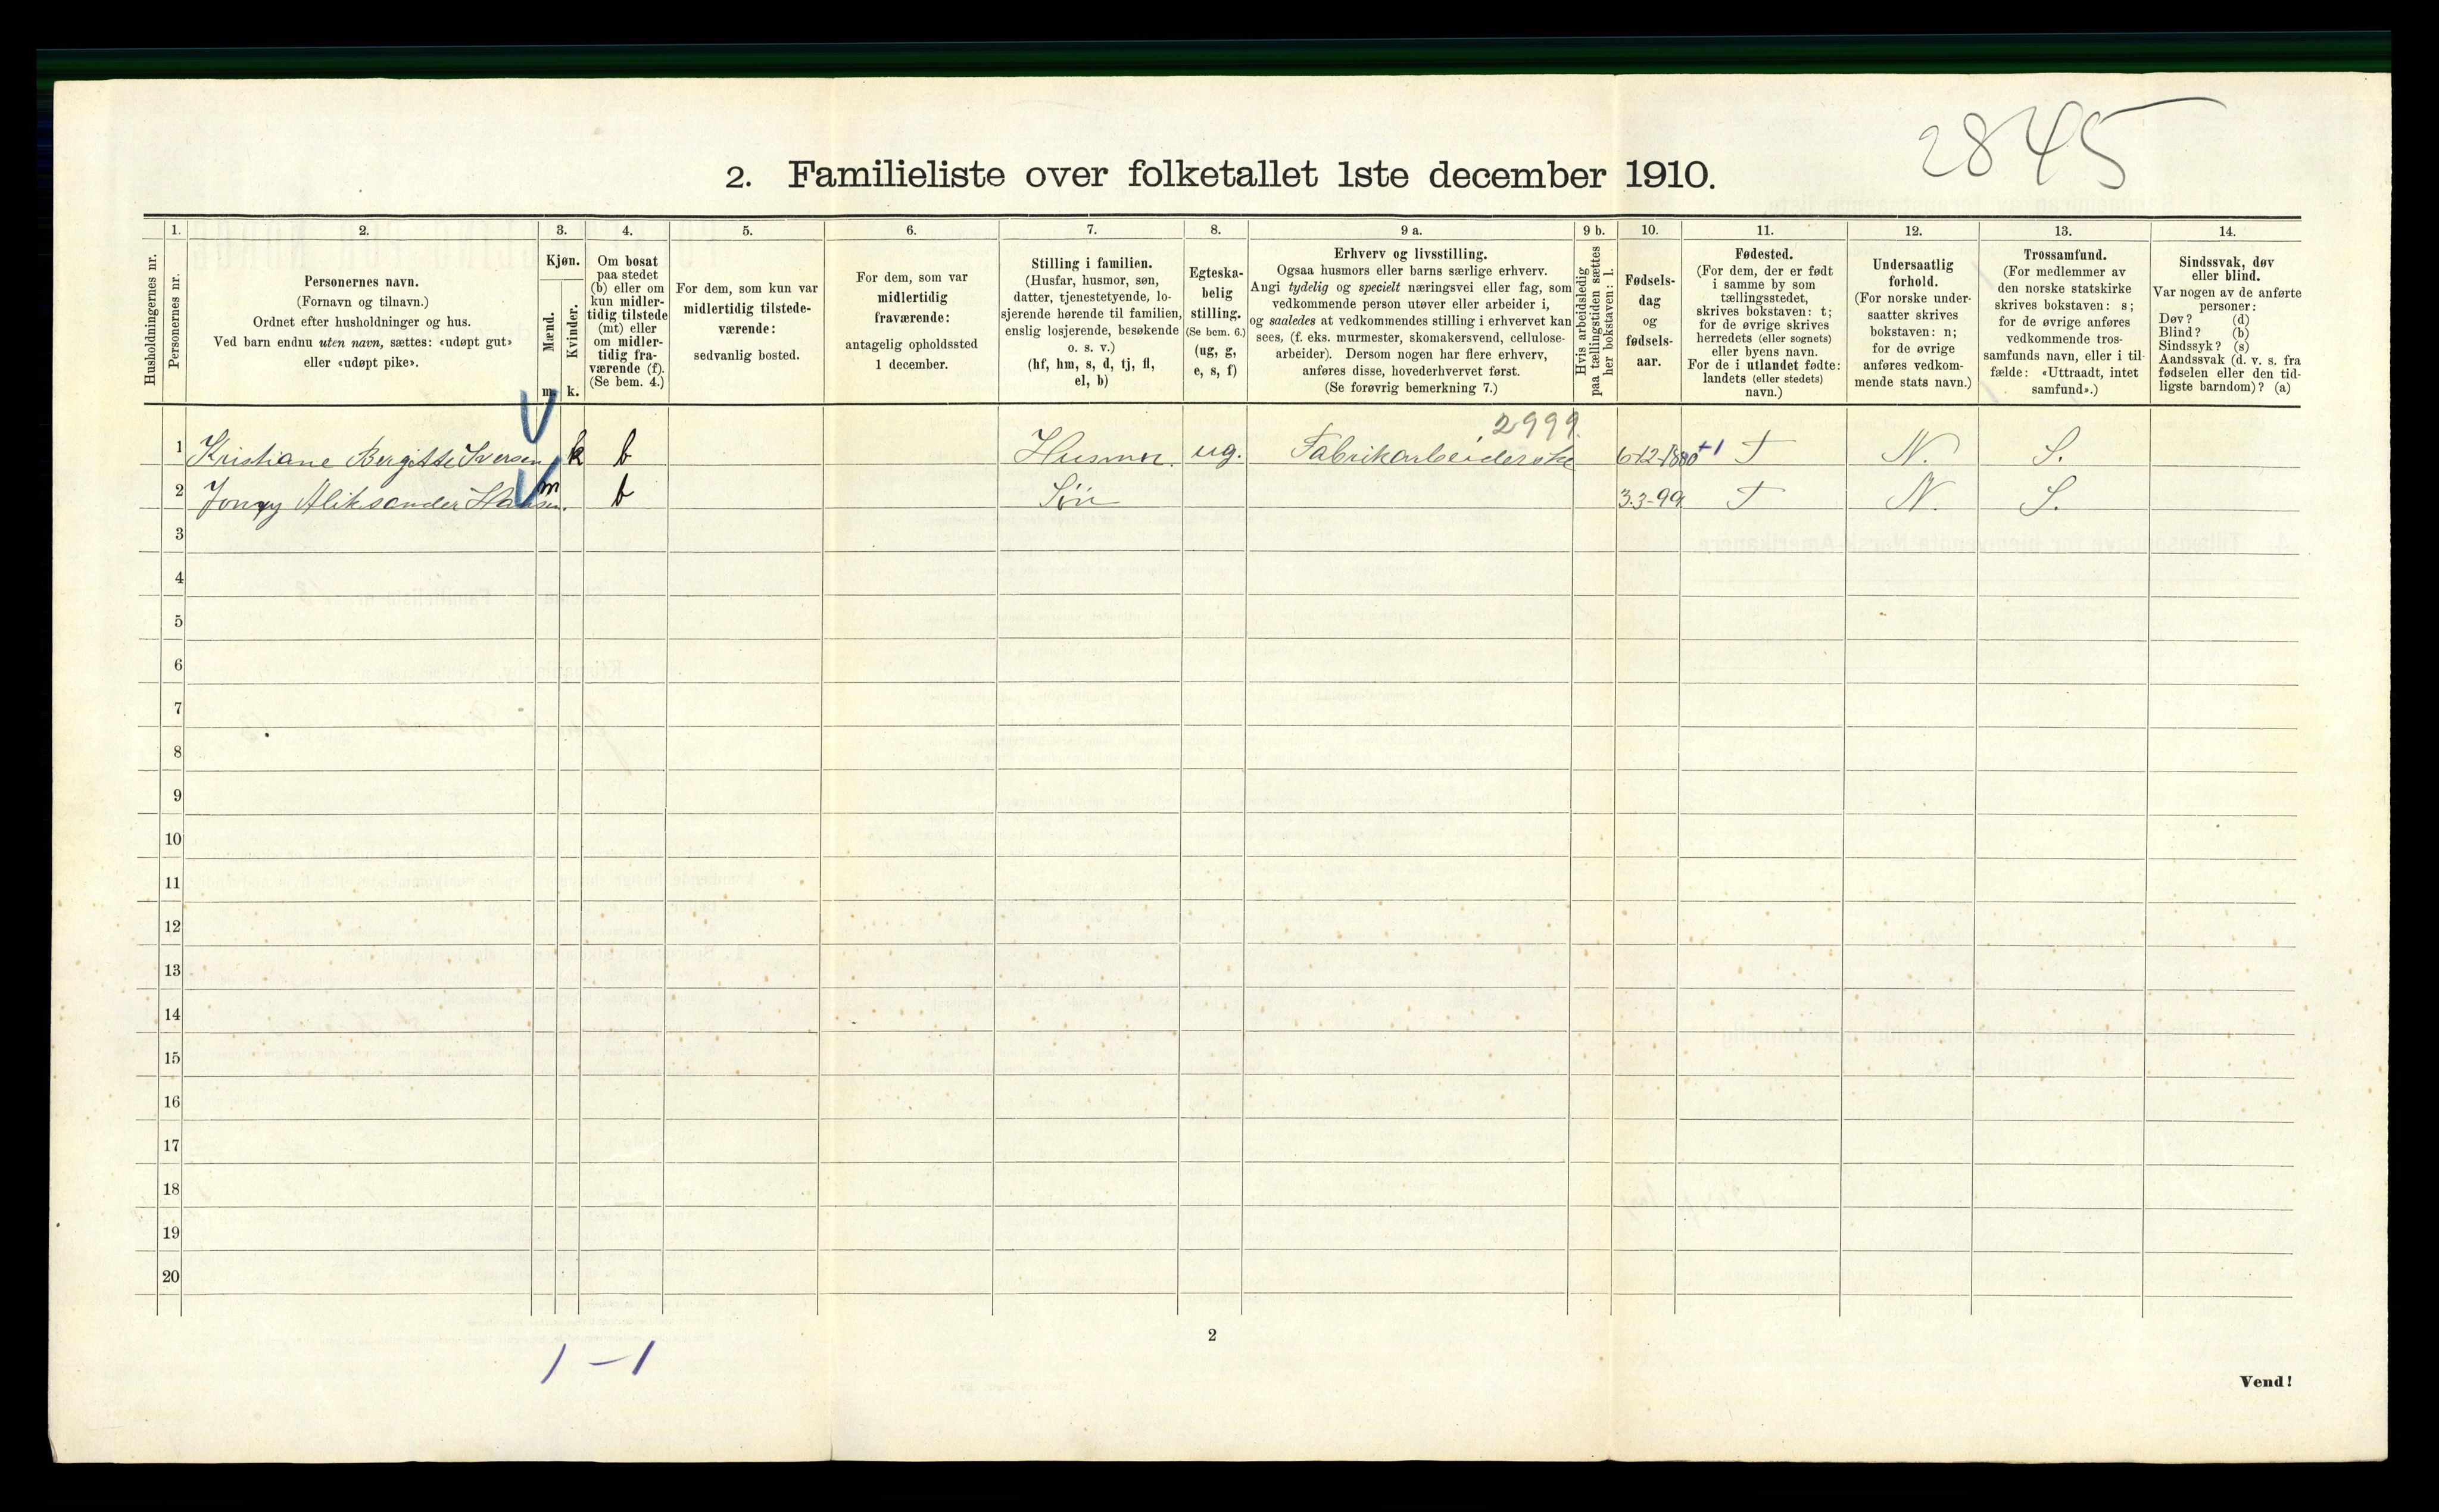 2845
2. Familieliste over folketallet 1ste december 1910.
1. 2. 3. 4. 5. 6. 7. 8. 9 a. 9 b. 10. 11. 12. 13. 14.
Husholdningernes nr.
Personernes nr.
Personernes navn.
(Fornavn og tilnavn.)
Ordnet efter husholdninger og hus.
Ved barn endnu uten navn, sættes: «udøpt gut»
eller «udøpt pike».
Kjøn.
Mænd.
m.
Kvinder.
k.
Om bosat
paa stedet
(b) eller om
kun midler-
tidig tilstede
(mt) eller
om midler-
tidig fra-
værende (f).
(Se bem. 4.)
For dem, som kun var
midlertidig tilstede-
værende:
sedvanlig bosted.
For dem, som var
midlertidig
fraværende:
antagelig opholdssted
1 december.
Stilling i familien.
(Husfar, husmor, søn,
datter, tjenestetyende, lo-
sjerende hørende til familien,
enslig losjerende, besøkende
o. s. v.)
(hf, hm, s, d, tj, fl,
el, b)
Egteska-
belig
stilling.
(Se bem. 6.)
(ug, g,
e, s, f)
Erhverv og livsstilling.
Ogsaa husmors eller barns særlige erhverv.
Angi tydelig og specielt næringsvei eller fag, som
vedkommende person utøver eller arbeider i,
og saaledes at vedkommendes stilling i erhvervet kan
sees, (f. eks. murmester, skomakersvend, cellulose-
arbeider). Dersom nogen har flere erhverv,
anføres disse, hovederhvervet først.
(Se forøvrig bemerkning 7.)
Hvis arbeidsledig
paa tællingstiden sættes
her bokstaven: l.
Fødsels-
dag
og
fødsels-
aar.
Fødested.
(For dem, der er født
i samme by som
tællingsstedet,
skrives bokstaven: t;
for de øvrige skrives
herredets (eller sognets)
eller byens navn.
For de i utlandet fødte:
landets (eller stedets)
navn.)
Undersaatlig
forhold.
(For norske under-
saatter skrives
bokstaven: n;
for de øvrige
anføres vedkom-
mende stats navn.)
Trossamfund.
(For medlemmer av
den norske statskirke
skrives bokstaven: s;
for de øvrige anføres
vedkommende tros-
samfunds navn, eller i til-
fælde: «Uttraadt, intet
samfund».)
Sindssvak, døv
eller blind.
Var nogen av de anførte
personer:
Døv? (d)
Blind? (b)
Sindssyk? (s)
Aandssvak (d. v. s. fra
fødselen eller den tid-
ligste barndom)? (a)
2999.
1 Kristiane Bergitte Iversen k b Husmor. ug. Fabrikarbeiderske 6-12-1880 +1 T N. S.
2 Jonny Aliksander Hansen. m b Sön 3-3-99 T N. S.
3
4
5
6
7
8
9
10
11
12
13
14
15
16
17
18
19
20
2
1 – 1
Vend!